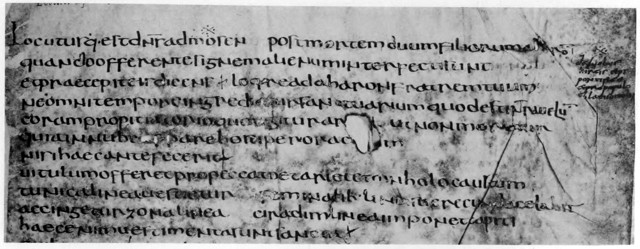 Locutusq; est dns ad mosen post mortem duum filiorum
quando offerentes ignem alienum interfecti sunt
et praecepit ei dicens loquere ad aharon fratrem tuum
ne omni tempore ingrediatur sanctuarium quod est intra velu
coram propitiatorio quo tegitur ar ut non moriatur
quia in nube apparebo super orac
nisi haec ante fecerit
vitulum offeret pro peccato et arietem in holocaustum
tunica linea vestietur feminalib; lineis celabit
accingetur zona linea cidarim lineam imponet capiti
haec enim vestimenta sunt sancta